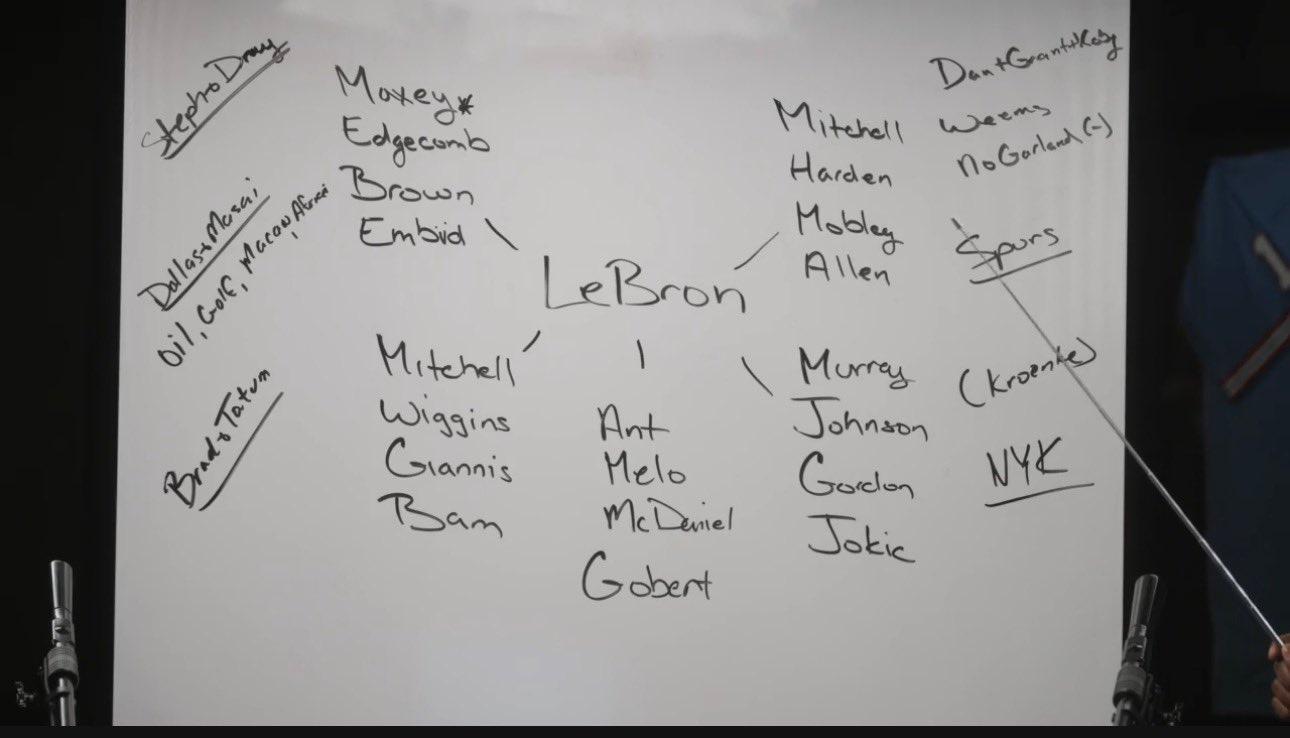 Steph + Dray
Dallas + Masai
Oil, Golf, Macau, Africa
Brad + Tatum
Maxey*
Edgecomb
Brown
Embiid
LeBron
Mitchell
Harden
Mobley
Allen
Dan + Grant + Koby
Weems
No Garland (-)
Spurs
(Kroenke)
NYK
Mitchell
Wiggins
Giannis
Bam
Ant
Melo
McDaniel
Gobert
Murray
Johnson
Gordon
Jokic
1